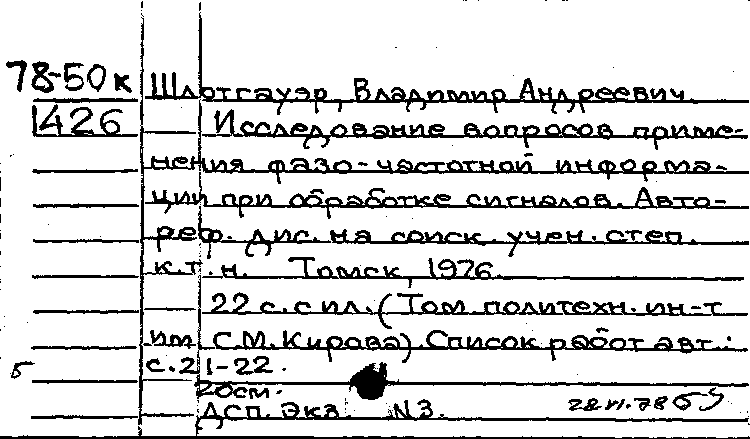 78-50к Шлотгауэр, Владимир Андреевич
1426 Исследование вопросов приме-
нения фазо-частотной информа-
ции при обработке сигналов. Авто-
реф. дис. на соиск. учен. степ.
к.т.н. Томск, 1976.
22 с. с ил. (Том. политехн. ин-т
им. С.М. Кирова). Список работ авт.:
Б с. 21-22.
20см.
ДСП. Экз. N3. 28.VI.78